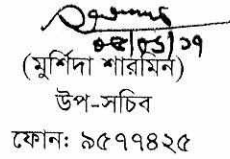 ০৫/০১/১৭
(মুর্শিদা শারমিন)
উপ-সচিব
ফোনঃ ৯৫৭৭৪২৫